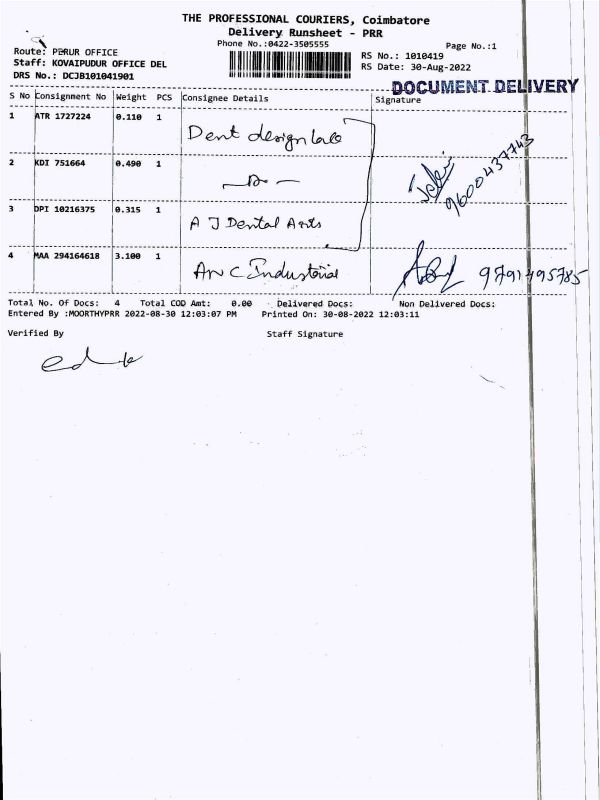 THE PROFESSIONAL COURIERS, Coimbatore
Delivery Runsheet - PRR
Phone No.:0422-3505555
Page No.:1
Route: PERUR OFFICE
Staff: KOVAIPUDUR OFFICE DEL
DRS No.: DCJB101041901
RS No.: 1010419
RS Date: 30-Aug-2022
DOCUMENT DELIVERY
S No Consignment No Weight PCS Consignee Details Signature
1 ATR 1727224 0.110 1 Dent design
2 KDI 751664 0.490 1
9600437743
3 DPI 10216375 0.315 1 A J Dental Arts
4 MAA 294164618 3.100 1 Industorial 9791495785
Total No. Of Docs: 4 Total COD Amt: 0.00 Delivered Docs: Non Delivered Docs:
Entered By :MOORTHYPRR 2022-08-30 12:03:07 PM Printed On: 30-08-2022 12:03:11
Verified By Staff Signature